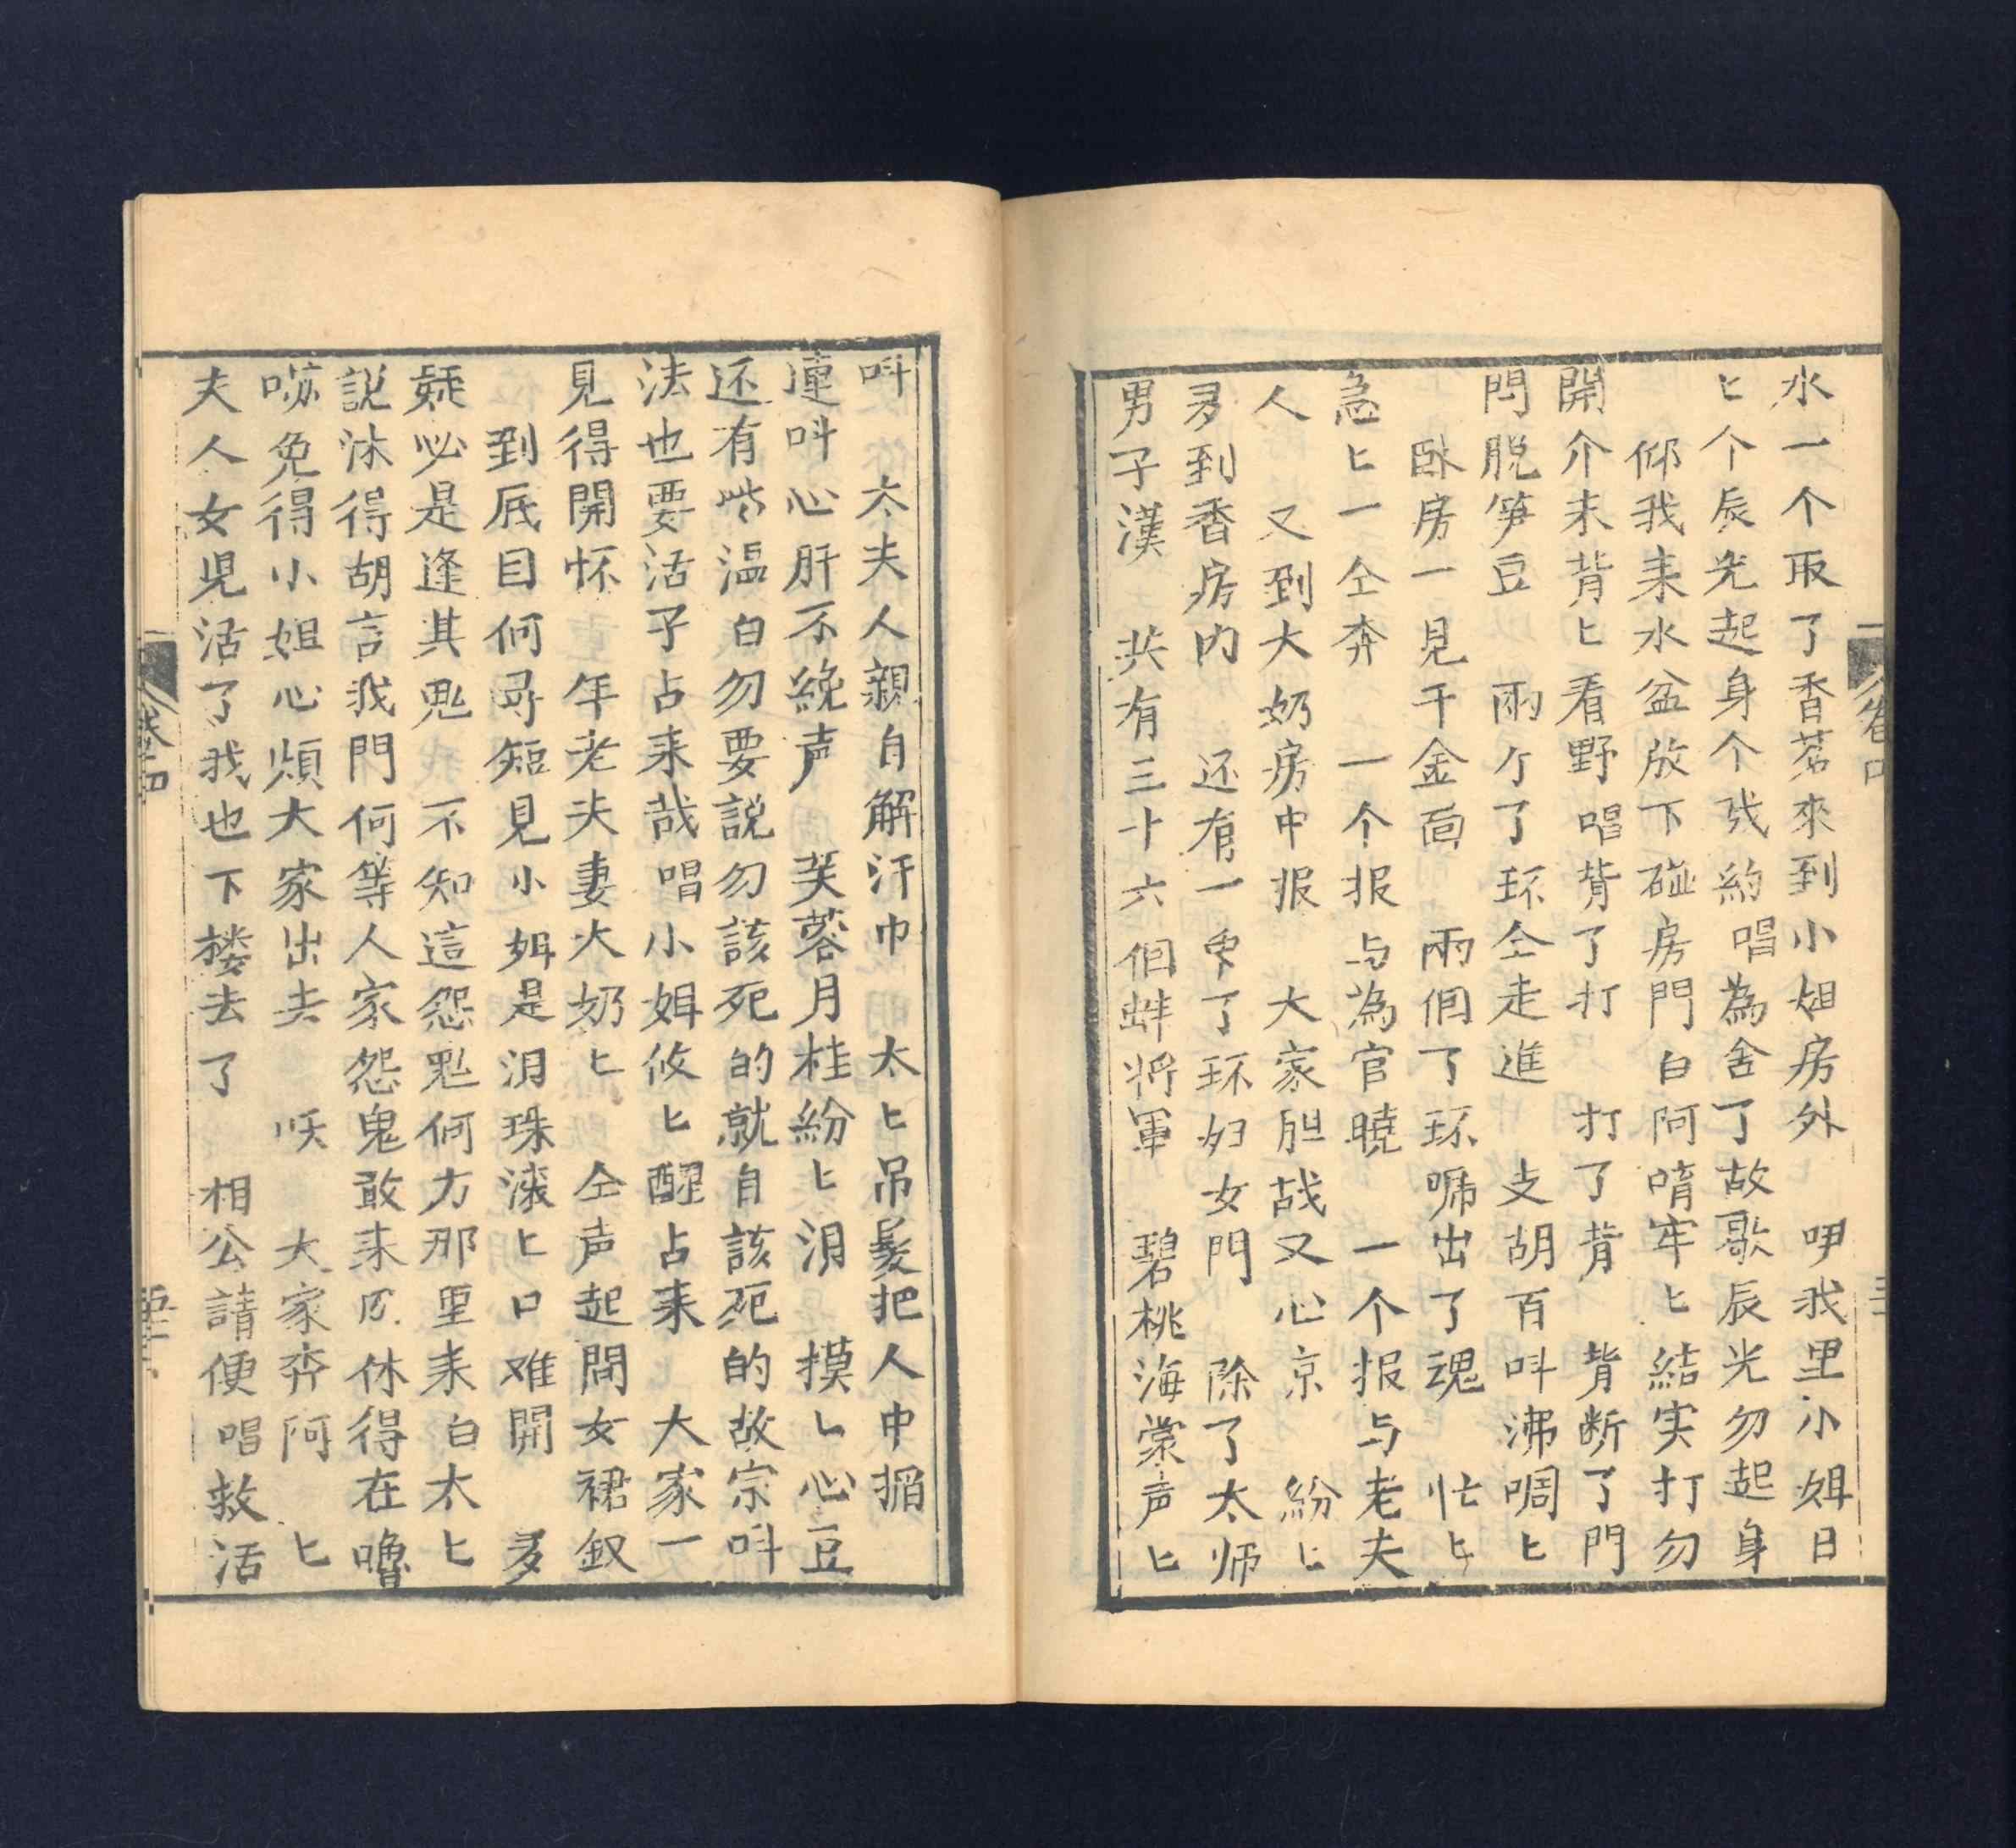 水一个取了香茗來到小姐房外　咿我里小姐日
匕个辰光起身个我約唱為舍了故歇辰光勿起身
仰我耒水盆放下碰房門白阿唷牢匕結实打勿
開介末背匕看野唱背了打　打了背　背断了門
閂脱笋豆　兩个了环仝走進　支胡百呌沸啁匕
卧房一見千金面　兩個了环唬出了魂　忙匕
急匕一仝奔　一个报与為官曉　一个报与老夫
人　又到大奶房中报　大家胆战又心京　紛匕
多到香房内　还有一口了环妇女門　除了太师
男子漢　共有三十六個蚌将軍　碧桃海棠声匕
呌　太夫人親自解汗巾　太匕吊髮把人中掐
連呌心肝不絶声　芙蓉月桂紛匕泪　摸匕心豆
还有些温白勿要説勿該死的就自該死的故宗呌
法也要活子占耒哉唱小姐攸匕醒占耒　大家一
見得開怀　年老夫妻大奶匕　仝声起問女裙釵
到底因何尋短見小姐是泪珠滚匕口难開　多
疑必是逢其鬼　不知這怨鬼何方那里耒白太匕
説沐得胡言我門何等人家怨鬼敢耒叹休得在嚕
嗦免得小姐心煩大家出去　呅　大家夯阿　匕
夫人女児活了我也下楼去了　相公請便唱救活